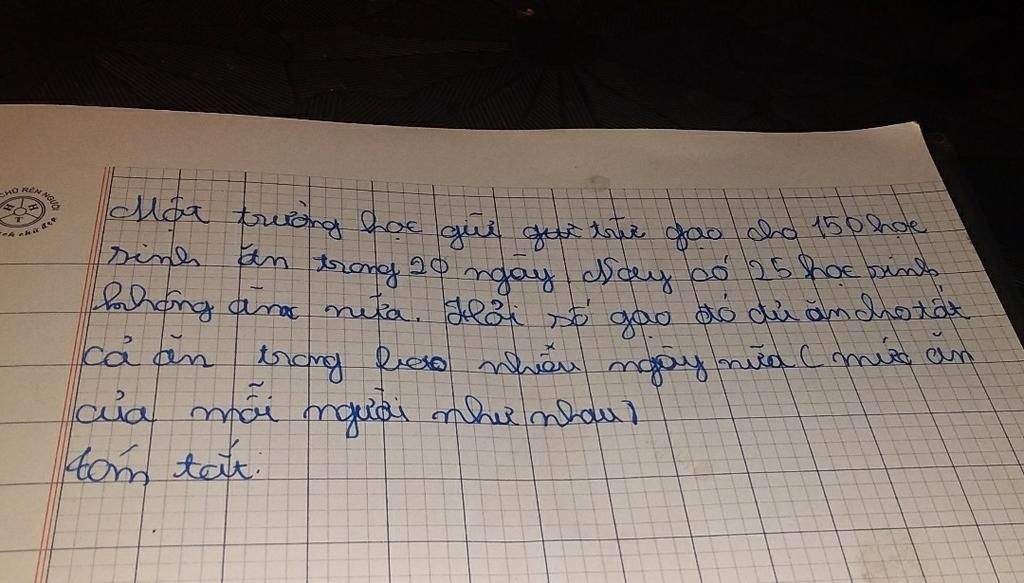 CHỮ RÈN NGƯỜI
H H
T
Một trường học gửi trữ gạo cho 150 học
sinh ăn trong 20 ngày Nay có 25 học sinh
không ăn nữa. Hỏi số gạo đó đủ ăn cho tất
cả ăn trong bao nhiêu ngày nữa ( mức ăn
của mỗi người như nhau)
tóm tắt: